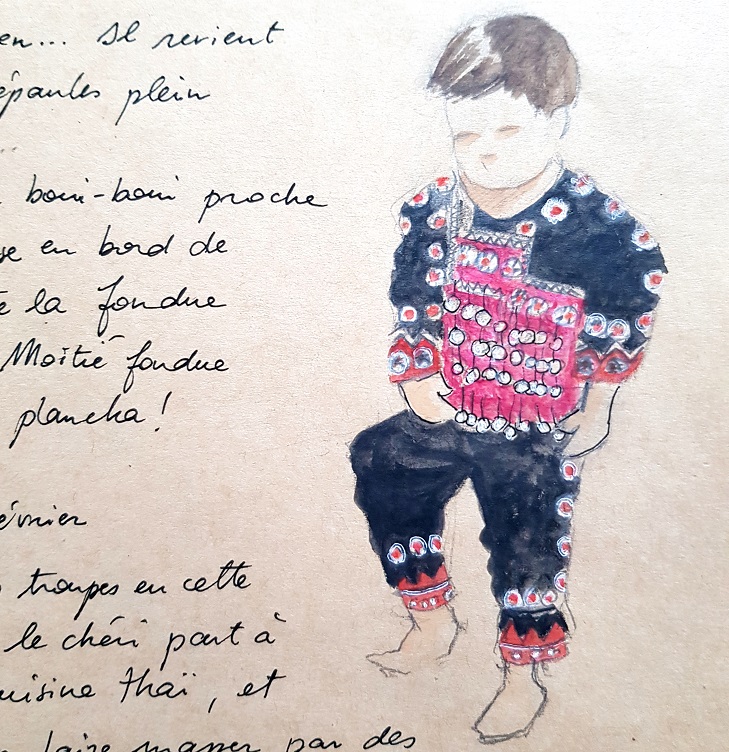 en... Il revient
épaules plein
...
boui-boui proche
en bord de
la fondue
Moitié fondue
plancha !
évrier
troupes en cette
le chéri part à
uisine thaï, et
faire masser par des